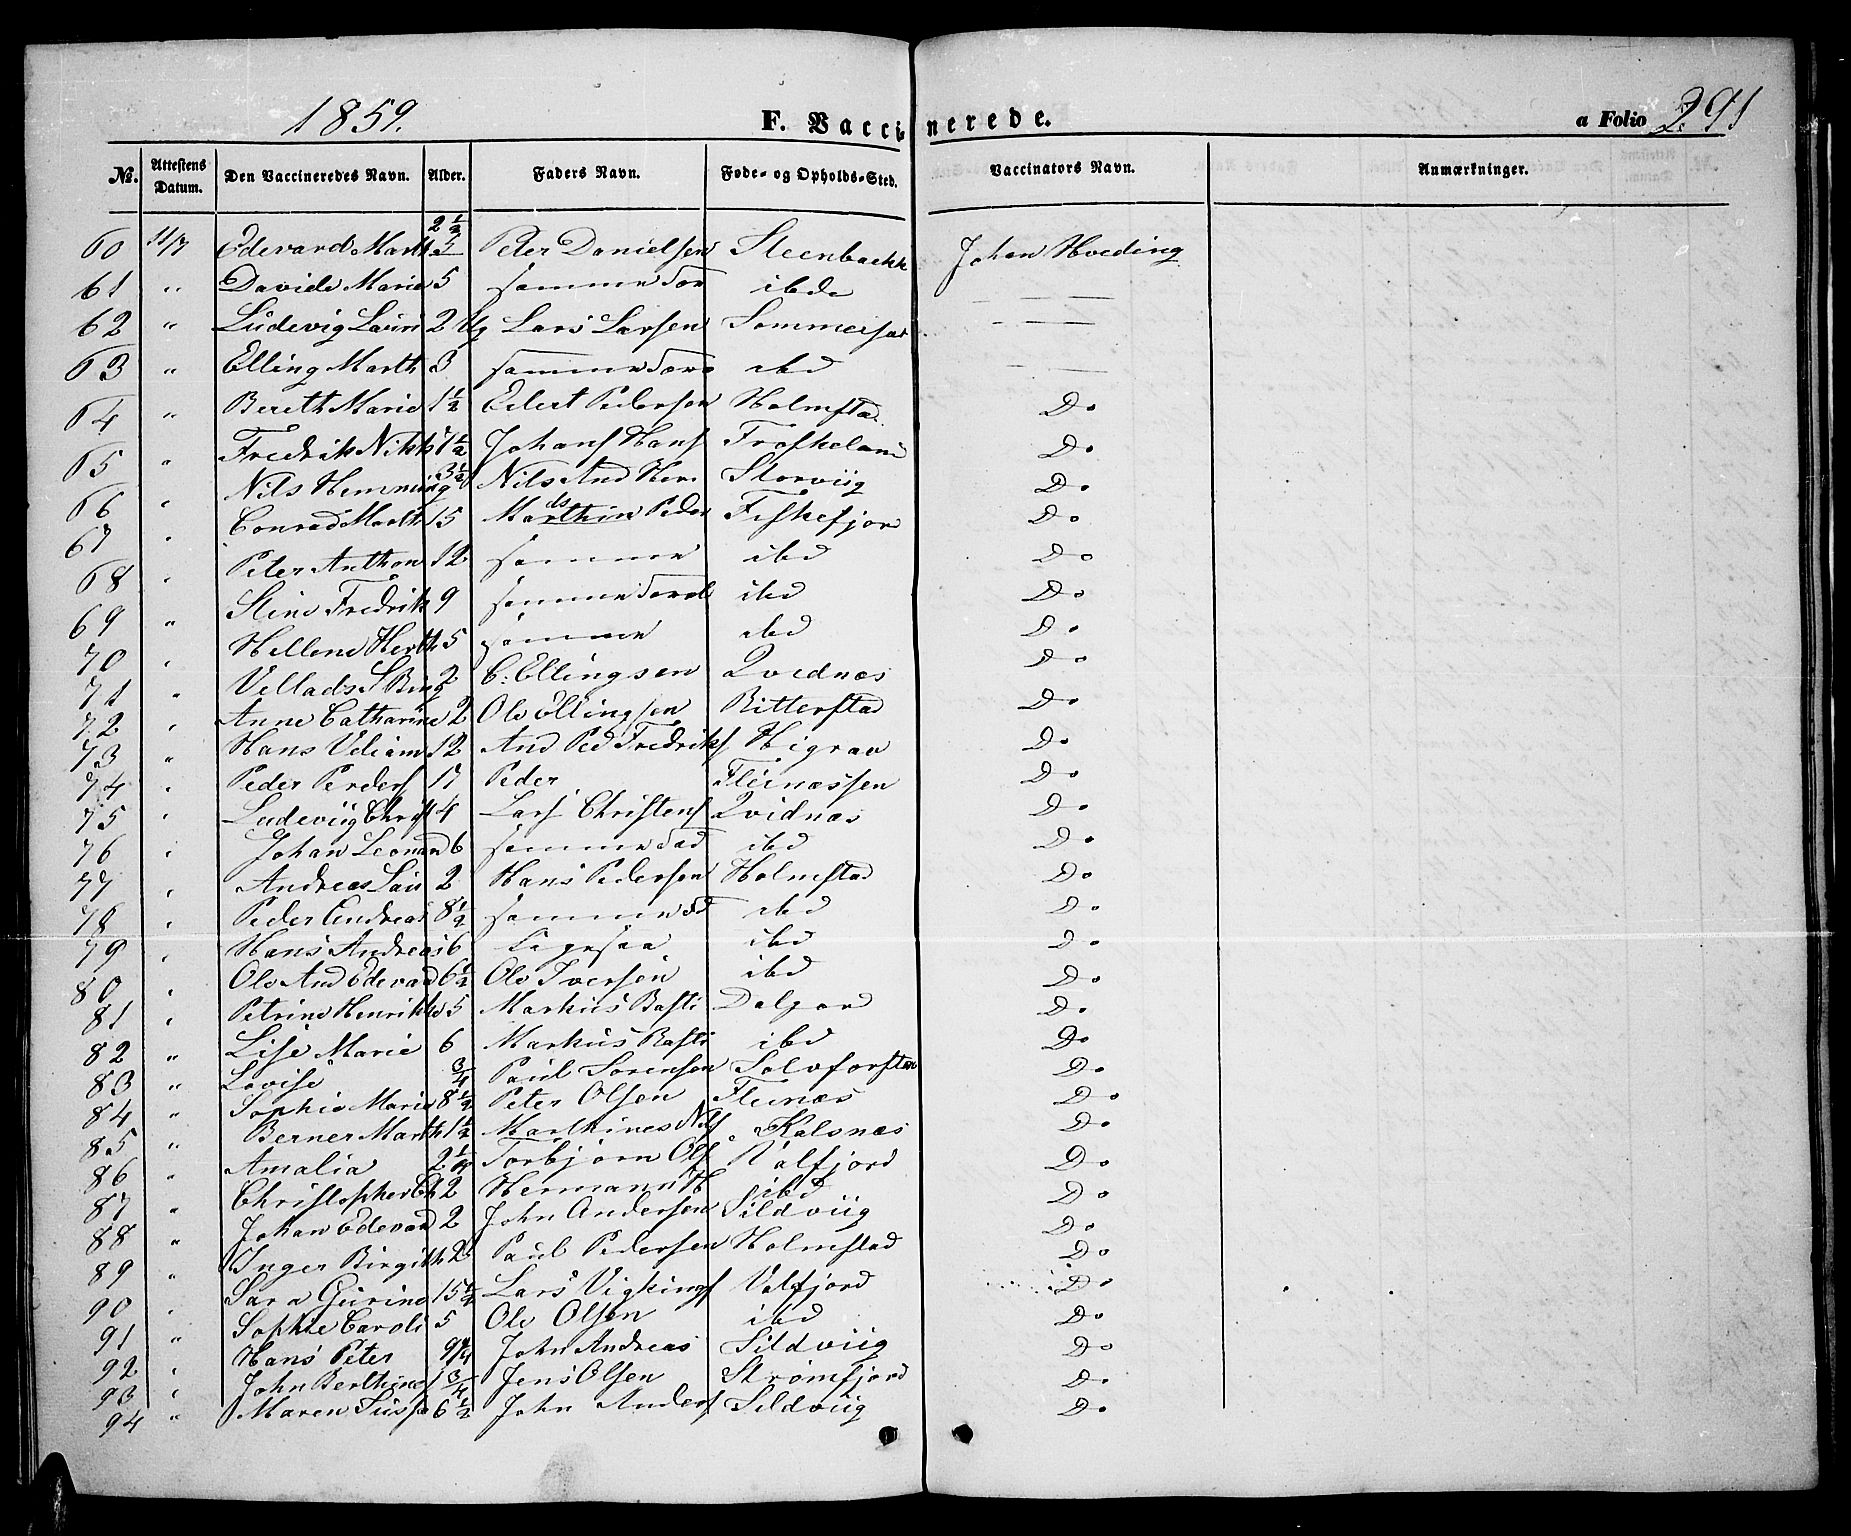 1859.
F. Vaccinerede.
a Folio 291
No. Attestens Datum. Den Vaccineredes Navn. Alder. Faders Navn. Føde- og Opholds-Sted. Vaccinators Navn. Anmærkninger.
60 11/7 Edevard Marth 2 1/2 5 Peter Danielsen Steenbackk Johan Hveding
61 " Davide Marie 5 samme ibde — —
62 " Ludevig Lauri 2 1/4 Lars Larsen Sommerset — —
63 " Elling Marth 3 samme ibd — —
64 " Bereth Marie 1 1/2 Edert Pedersen Holmstad Do
65 " Fredrik Nikk 7 1/2 Johans Hans Froskeland Do
66 " Nils Hemming 3 1/2 Nils And Hen Storviig Do
67 " Conrad Marth 15 Marthin Peder Fiskefjor Do
68 " Peter Anthon 12 samme ibd Do
69 " Stine Fredrik 9 samme ibd Do
70 " Hellene Herth 5 samme ibd Do
71 " Vellads S Bing 2 C: Ellingsen Qvednæs Do
72 " Anne Catharine 2 Ole Ellingsen Bitterstad Do
73 " Hans Veliam 12 And Ped Fredriks Higrav Do
74 " Peder Perders 17 Peder Fleinæssen Do
75 " Ludeviig Christ 4 Lars Christens Qvidnæs Do
76 " Johan Leonard 6 samme ibd Do
77 " Andreas Lau 2 Hans Pedersen Holmstad Do
78 " Peder Andreas 8 1/2 samme ibd Do
79 " Hans Andreas 6 Ligesaa ibd Do
80 " Ole And Edevad 6 1/2 Ole Iversen ibd Do
81 " Petrine Henrikke 5 Markus Basti Dalgard Do
82 " Lise Marie 6 Markus Basti ibd Do
83 " Lovise 3/4 Paul Sørensen Do
84 " Sophie Marie 8 1/2 Peter Olsen Fleinæs Do
85 " Berner Marth 1 1/2 Marthines Nils Kalsnæs Do
86 " Amalia 2 1/4 Torbjørn Ols Valfjord Do
87 " Christopher Ch 2 Hermann H ibd Do
88 " Johan Edevard 2 John Andersen Sildviig Do
89 " Inger Birgith 2 Paul Pedersen Holmstad Do
90 " Sara Gurine 15 1/2 Lars Vigkings Valfjord Do
91 " Sophie Caroli 5 Ole Olsen ibd Do
92 " Hans Peter 9/4 John Andreas Sildviig Do
93 " John Berthines 1 3/4 Jens Olsen Strømfjord Do
94 " Maren 6 1/2 John Anders Sildviig Do